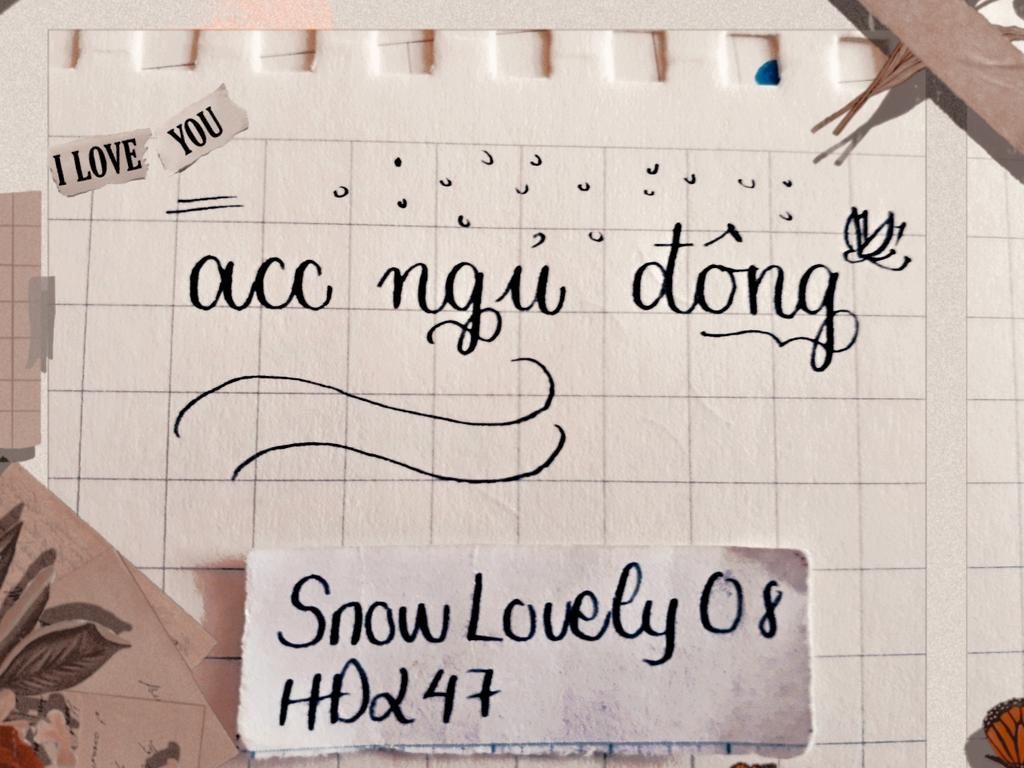 I LOVE YOU
acc ngủ đông
SnowLovely 08
HĐ247